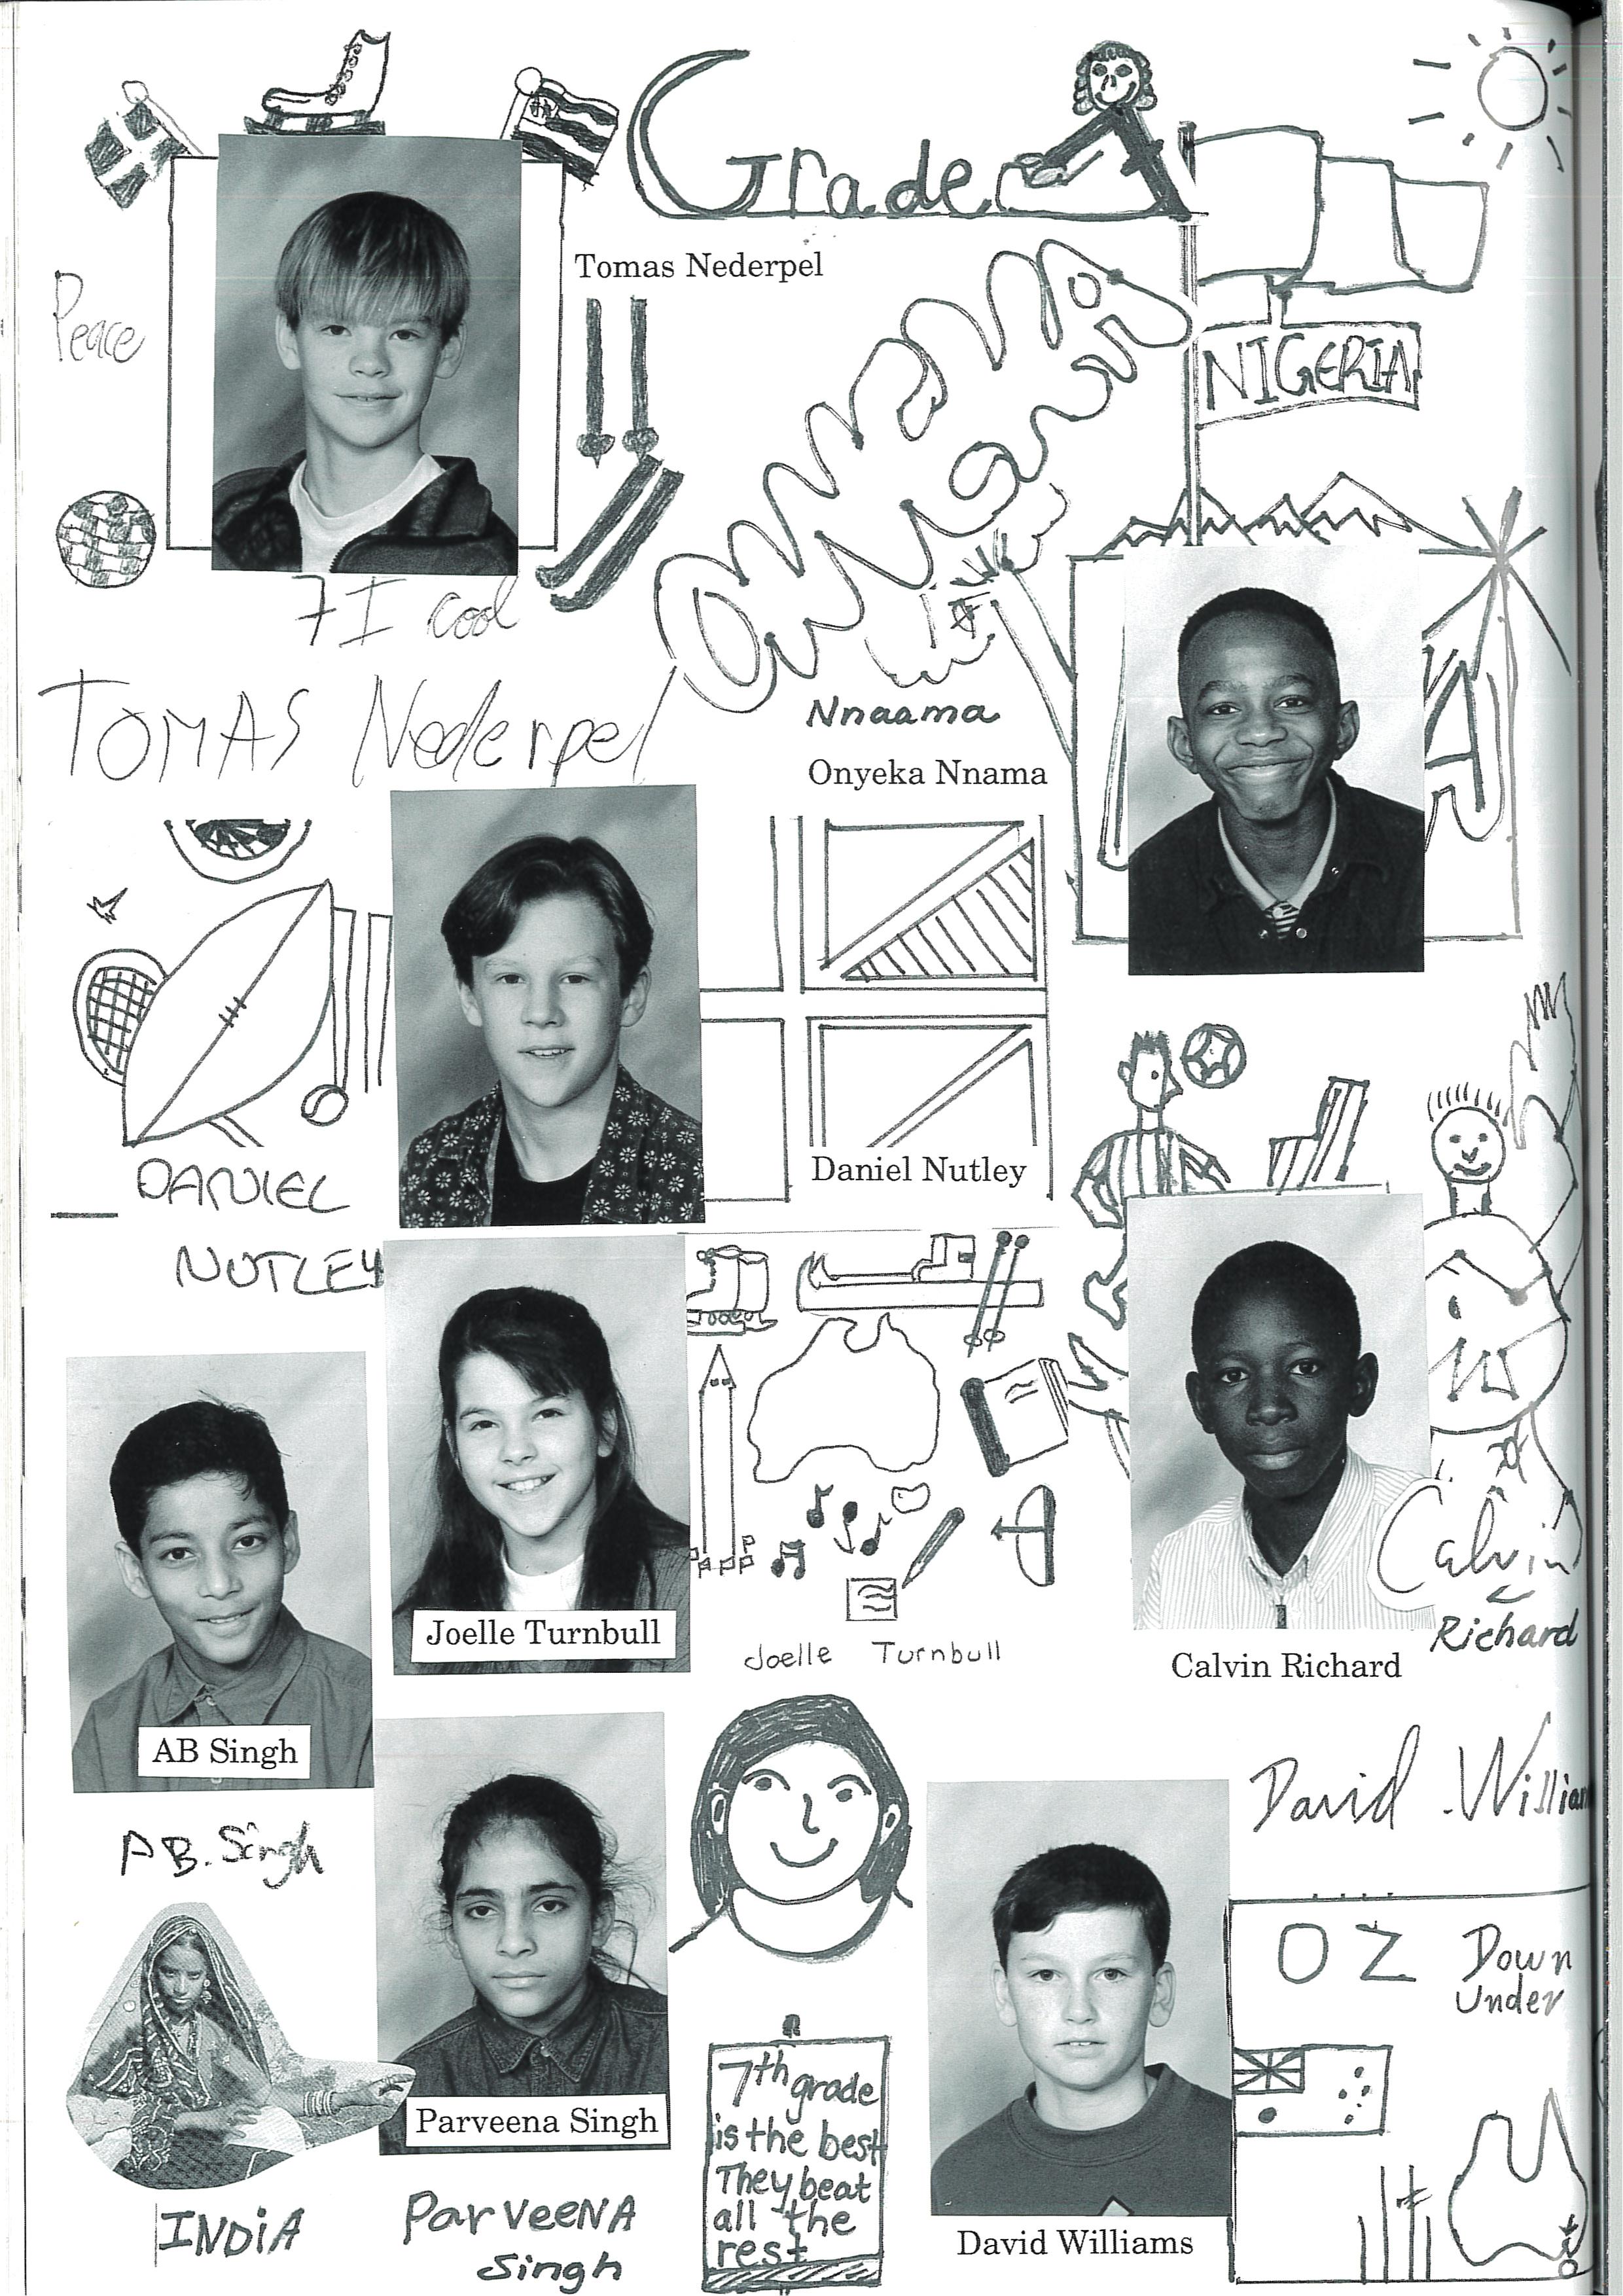 Grade
Tomas Nederpel
Peace
NIGERIA
7I cool
TOMAS Nederpel
Nnaama
Onyeka Nnama
Daniel Nutley
DANIEL
NUTLEY
Joelle Turnbull
Joelle Turnbull
Calvin
Richard
Calvin Richard
AB Singh
AB. Singh
David William
OZ Down
Under
Parveena Singh
7th grade
is the best
They beat
all the
rest
INDiA
ParVeeNA
Singh
David Williams